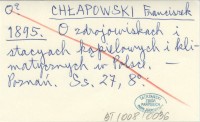 Q2 CHŁAPOWSKI Franciszek
1895. O zdrojowiskach i
stacyach kąpielowych i kli-
matycznych w Polsce. —
Poznań. Ss. 27, 8°.
BT 1008